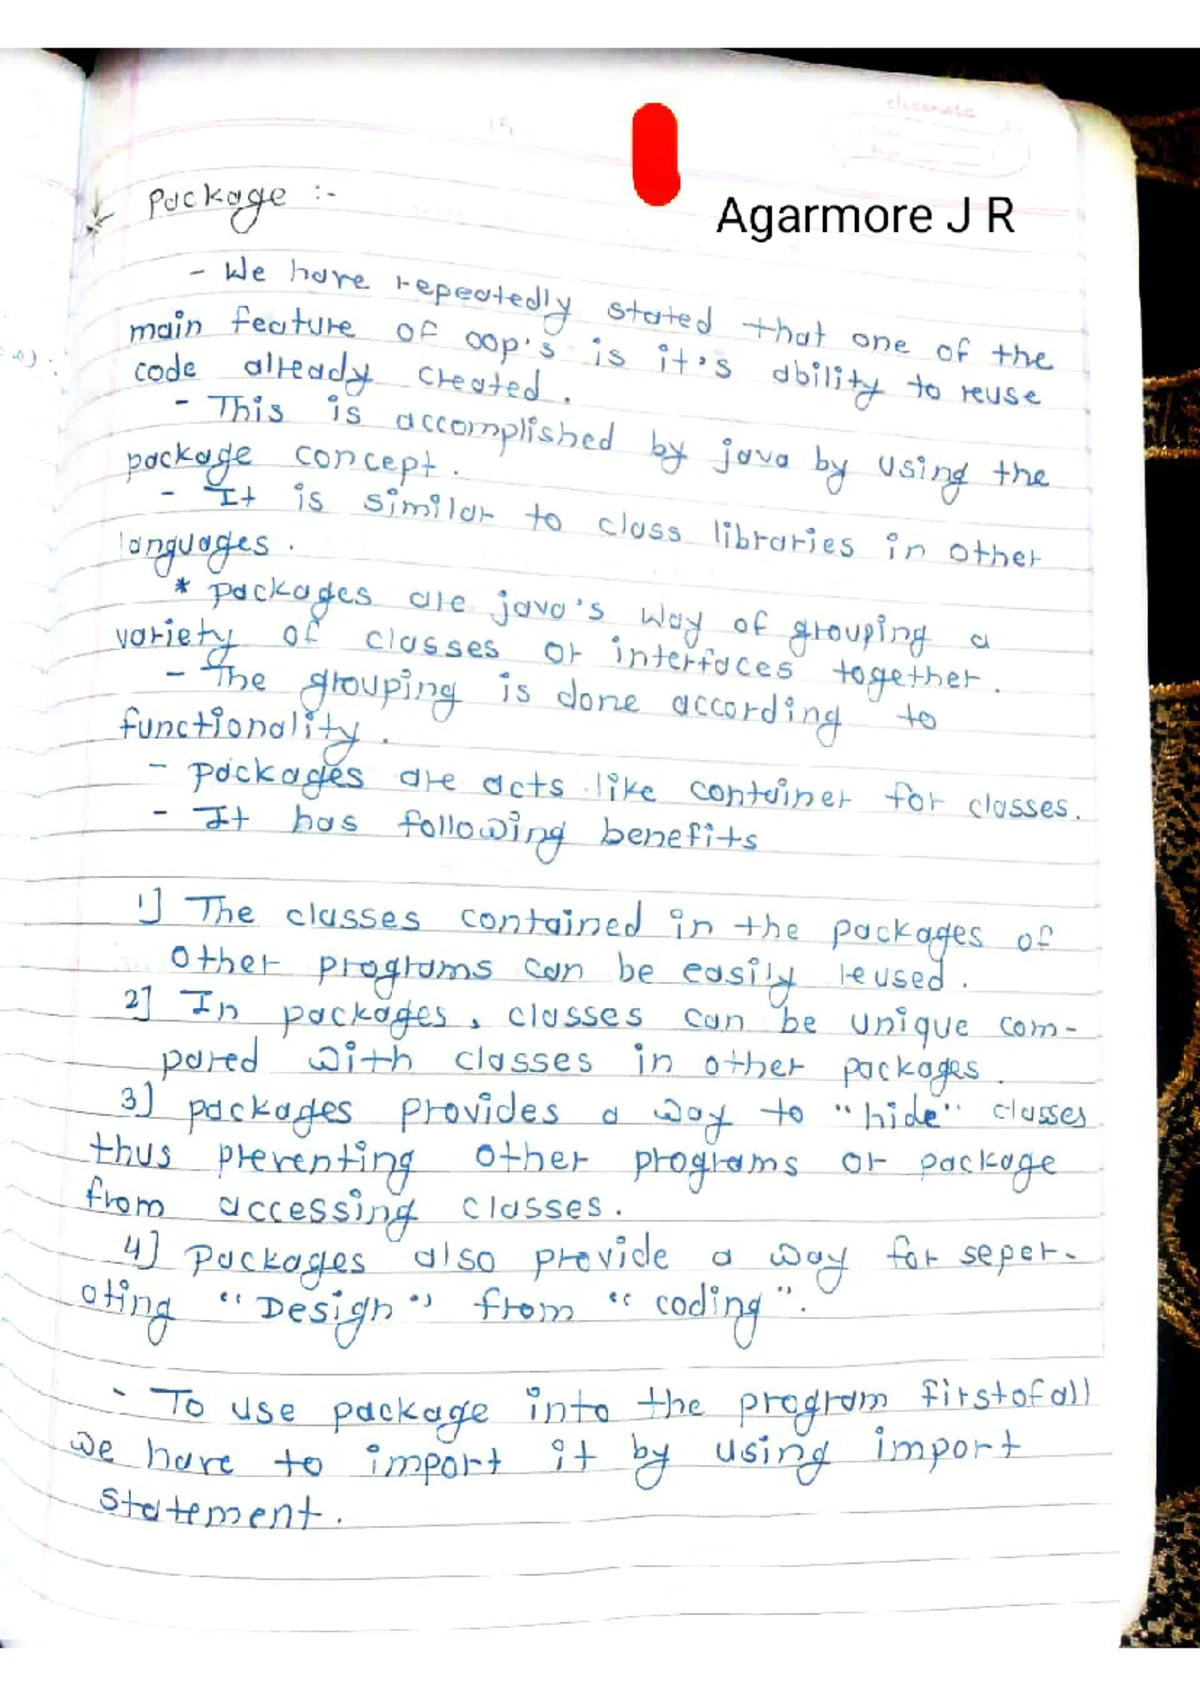 classmate
15
Package :-
Agarmore J R
- We have repeatedly stated that one of the
main feature of oop's is it's ability to reuse
code already created.
- This is accomplished by java by using the
package concept.
- It is similar to class libraries in other
languages.
* packages are java's way of grouping a
variety of classes or interfaces together.
- The grouping is done according to
functionality.
- packages are acts like container for classes.
- It has following benefits
1] The classes contained in the packages of
other programs can be easily reused.
2] In packages, classes can be unique com-
pared with classes in other packages.
3] packages provides a way to "hide" classes
thus preventing other programs or package
from accessing classes.
4] Packages also provide a way for seper-
ating "Design" from "coding".
- To use package into the program firstofall
we have to import it by using import
statement.